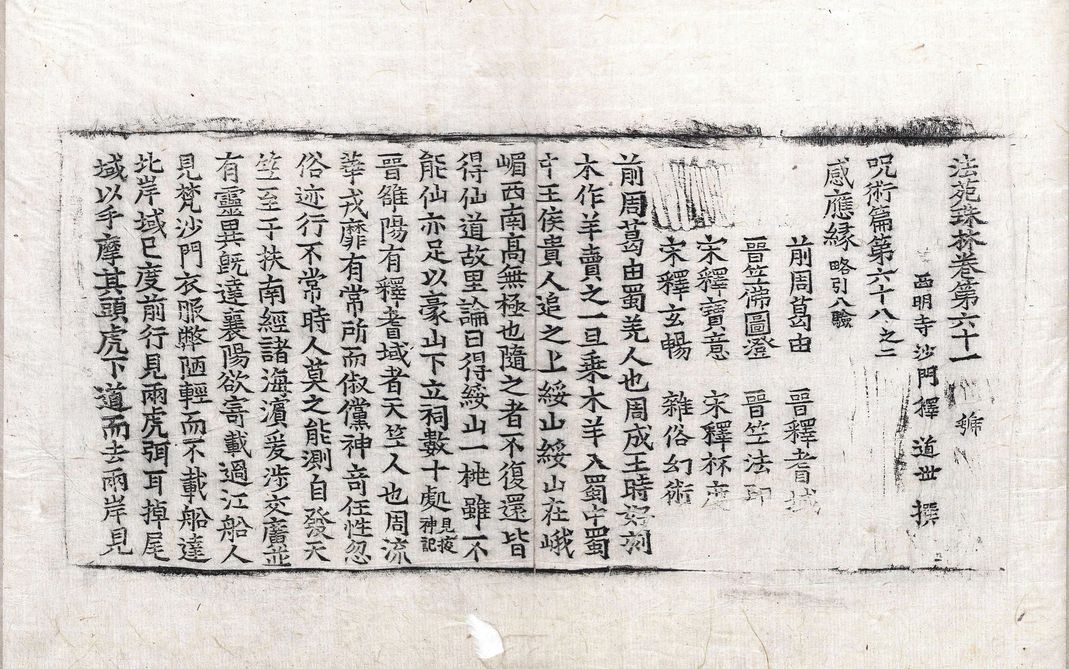 法苑珠林卷第六十一
西明寺沙門釋道世撰
呪術篇第六十八之二
感應緣 略引八驗
前周葛由 晉釋耆域
晉竺佛圖澄 晉竺法印
宋釋寶意 宋釋杯度
宋釋玄暢 雜俗幻術
前周葛由蜀羌人也周成王時好刻
木作羊賣之一旦乘木羊入蜀中蜀
中王侯貴人追之上綏山綏山在峨
嵋西南髙無極也隨之者不復還皆
得仙道故里論曰得綏山一桃雖不
能仙亦足以豪山下立祠數十處 見搜神記
晉雒陽有釋耆域者天竺人也周流
華戎靡有常所而俶儻神奇任性忽
俗迹行不常時人莫之能測自發天
竺至于扶南經諸海濵爰涉交廣並
有靈異旣達襄陽欲寄載過江船人
見梵沙門衣服弊陋輕而不載船達
北岸域已度前行見兩虎弭耳掉尾
域以手摩其頭虎下道而去兩岸見